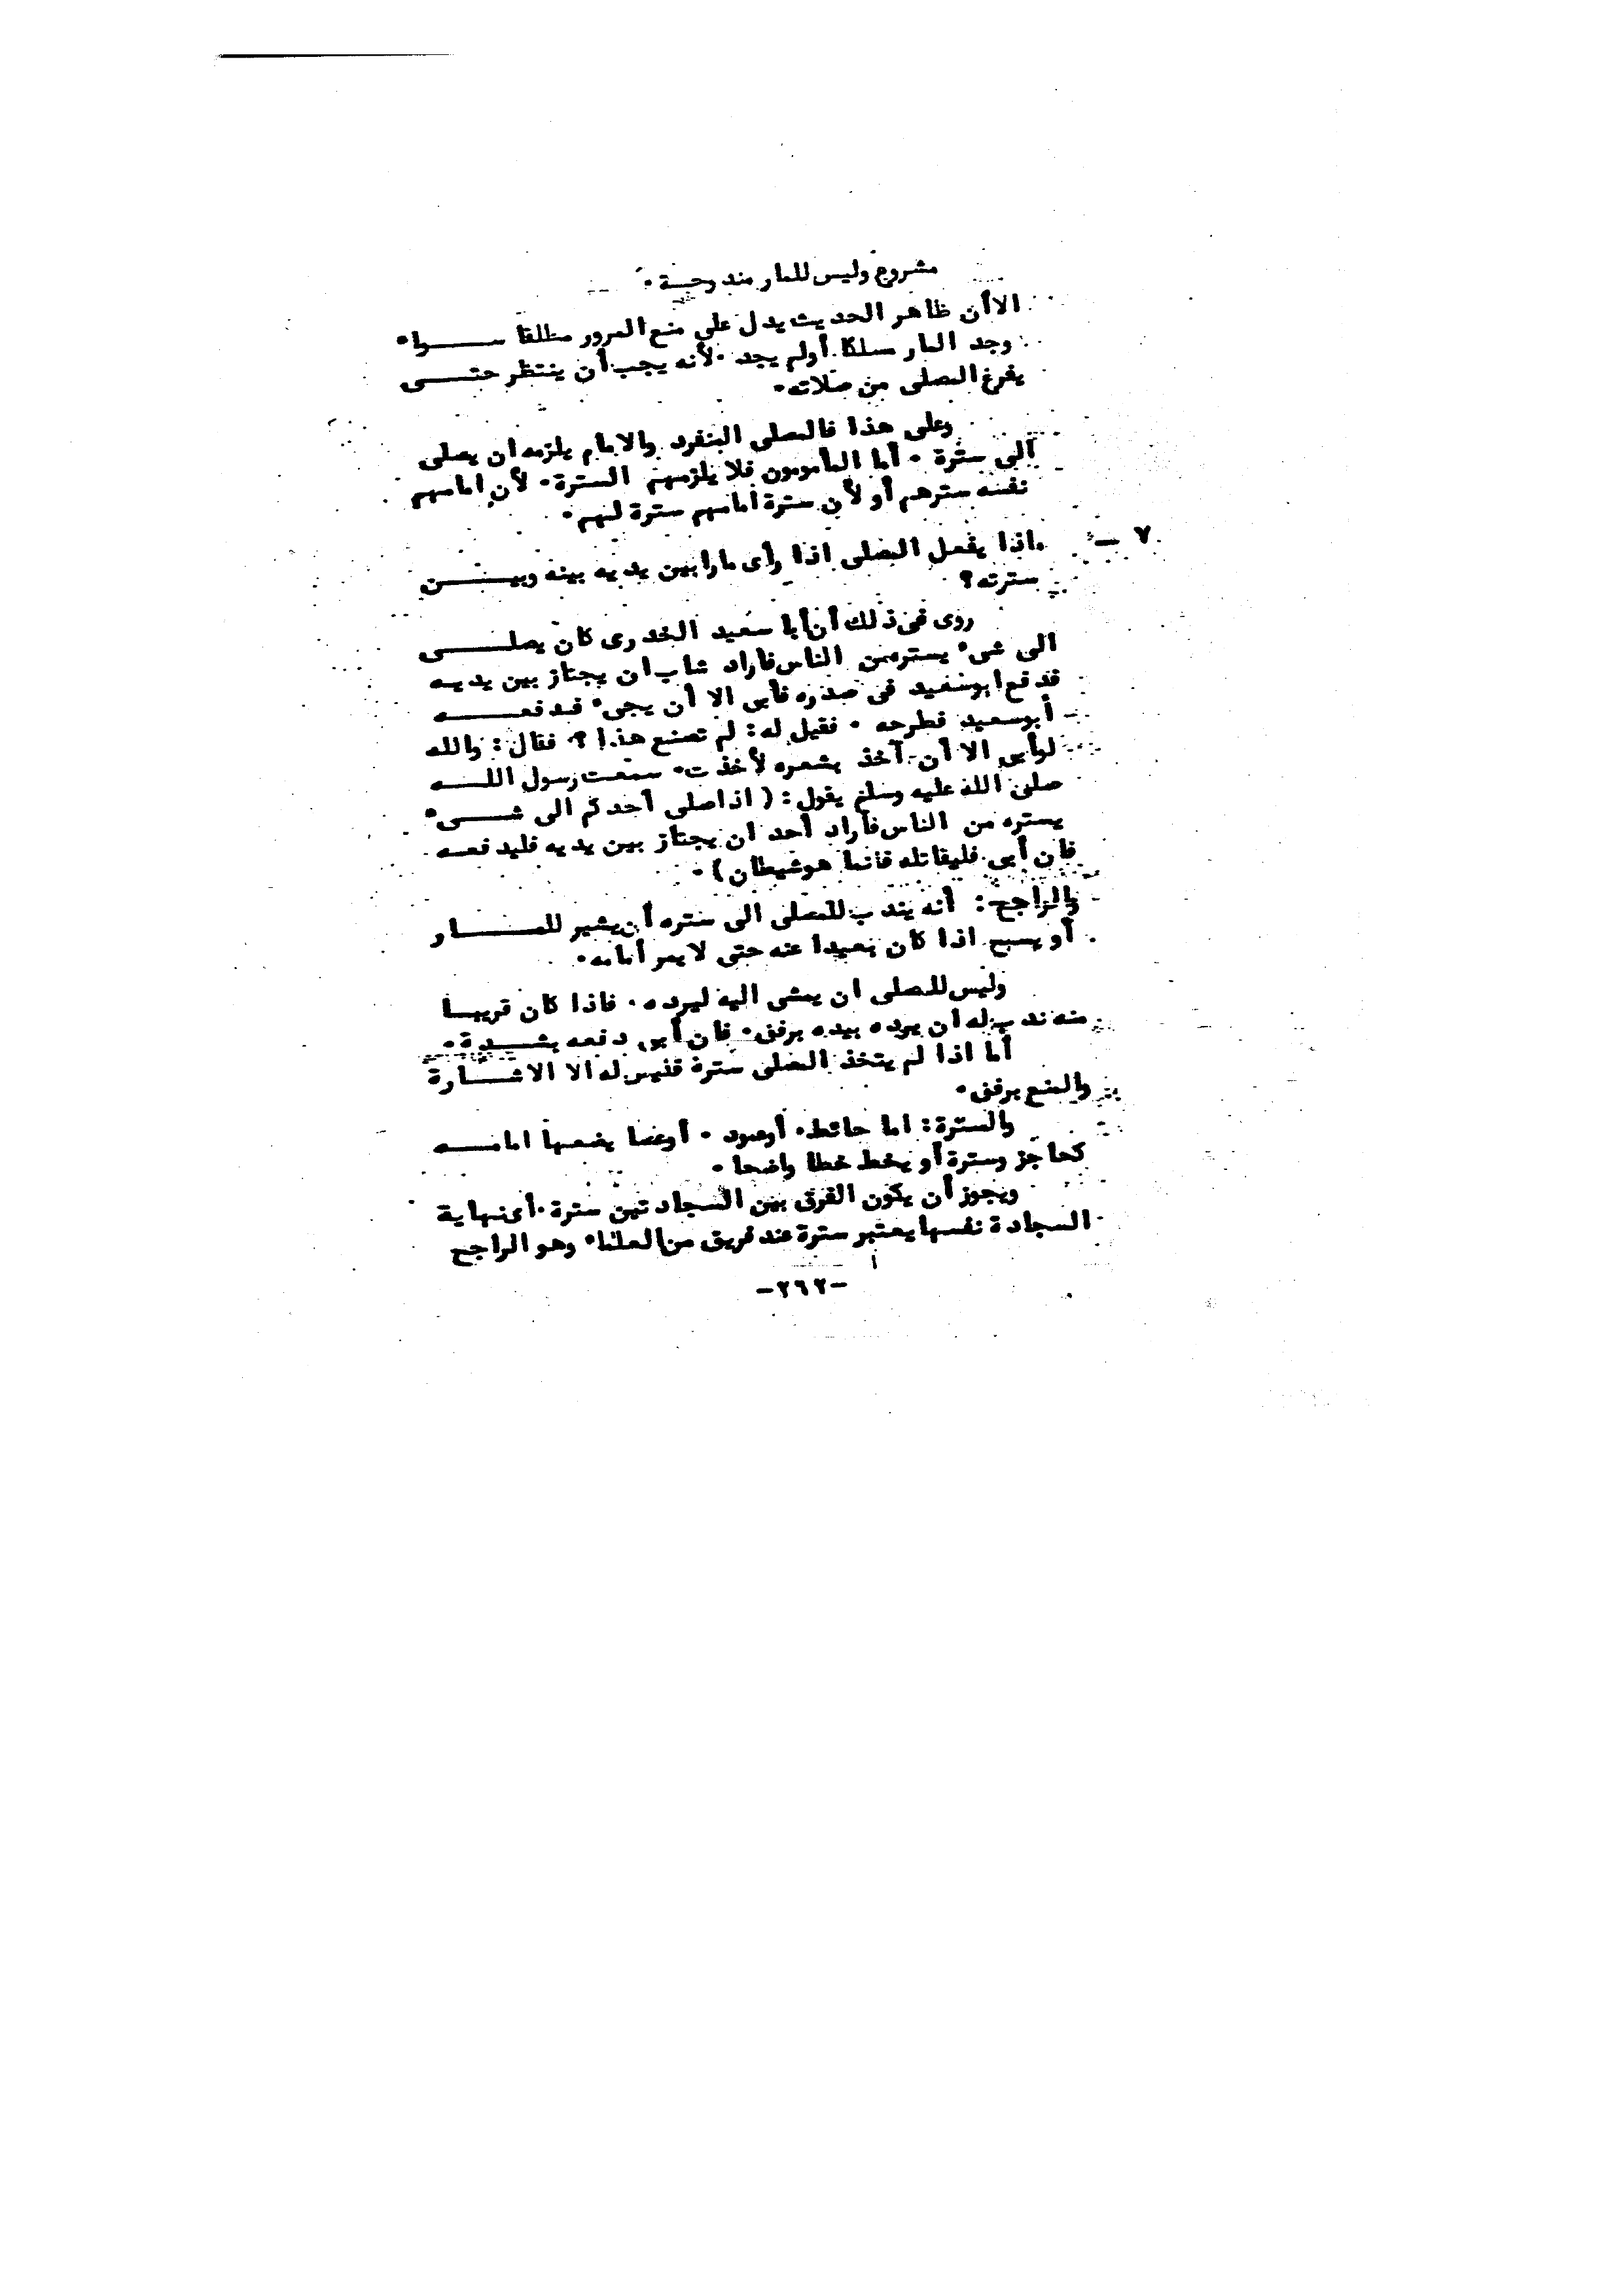 مشروع وليس للمار مندوحة ٠
الاأن ظاهر الحديث يدل على منع المرور مطلقا ســـواء
وجد المار مسلكا أولم يجد ٠ لأنه يجب أن ينتظر حتـــى
يفرغ المصلى من صلاته ٠
وعلى هذا فالمصلى المنفرد والامام يلزمه ان يصلى
الى سترة ٠ أما المأمومون فلا يلزمهم السترة ٠ لأن امامهم
نفسه سترهم أو لأن سترة امامهم سترة لهم ٠
٧ ــ ماذا يفعل المصلى اذا رأى مارا بين يديه بينه وبيـــن
سترته ؟
روى فى ذلك أن أبا سعيد الخدرى كان يصلـــى
الى شىء يستره من الناس فأراد شاب ان يجتاز بين يديـه
فدفع ابوسعيد فى صدره فأبى الا أن يجىء فدفعـــه
أبوسعيد فطرحه ٠ فقيل له : لم تصنع هذا ؟ فقال : والله
لوأبى الا أن آخذ بشعره لأخذت ٠ سمعت رسول اللـــه
صلى الله عليه وسلم يقول : ( اذاصلى أحدكم الى شـــىء
يستره من الناس فأراد أحد ان يجتاز بين يديه فليدفعـه
فان أبى فليقاتله فانما هوشيطان ) ٠
والراجح : أنه يندب للمصلى الى ستره أن يشير للمـــار
أو يسبح اذا كان بعيدا عنه حتى لا يمر أمامه ٠
وليس للمصلى ان يمشى اليه ليرده ٠ فاذا كان قريبـا
منه ندب له ان يرده بيده برفق ٠ فان أبى دفعه بشـــدة ٠
أما اذا لم يتخذ المصلى سترة فليس له الا الاشـــارة
والمنع برفق ٠
والسترة : اما حائط ٠ أوعمود ٠ أوعصا يضعها امامـــه
كحاجز وسترة أو يخط خطا واضحا ٠
ويجوز أن يكون الفرق بين السجادتين سترة ٠ أى نهاية
السجادة نفسها يعتبر سترة عند فريق من العلماء وهو الراجح
-٢٦٢-